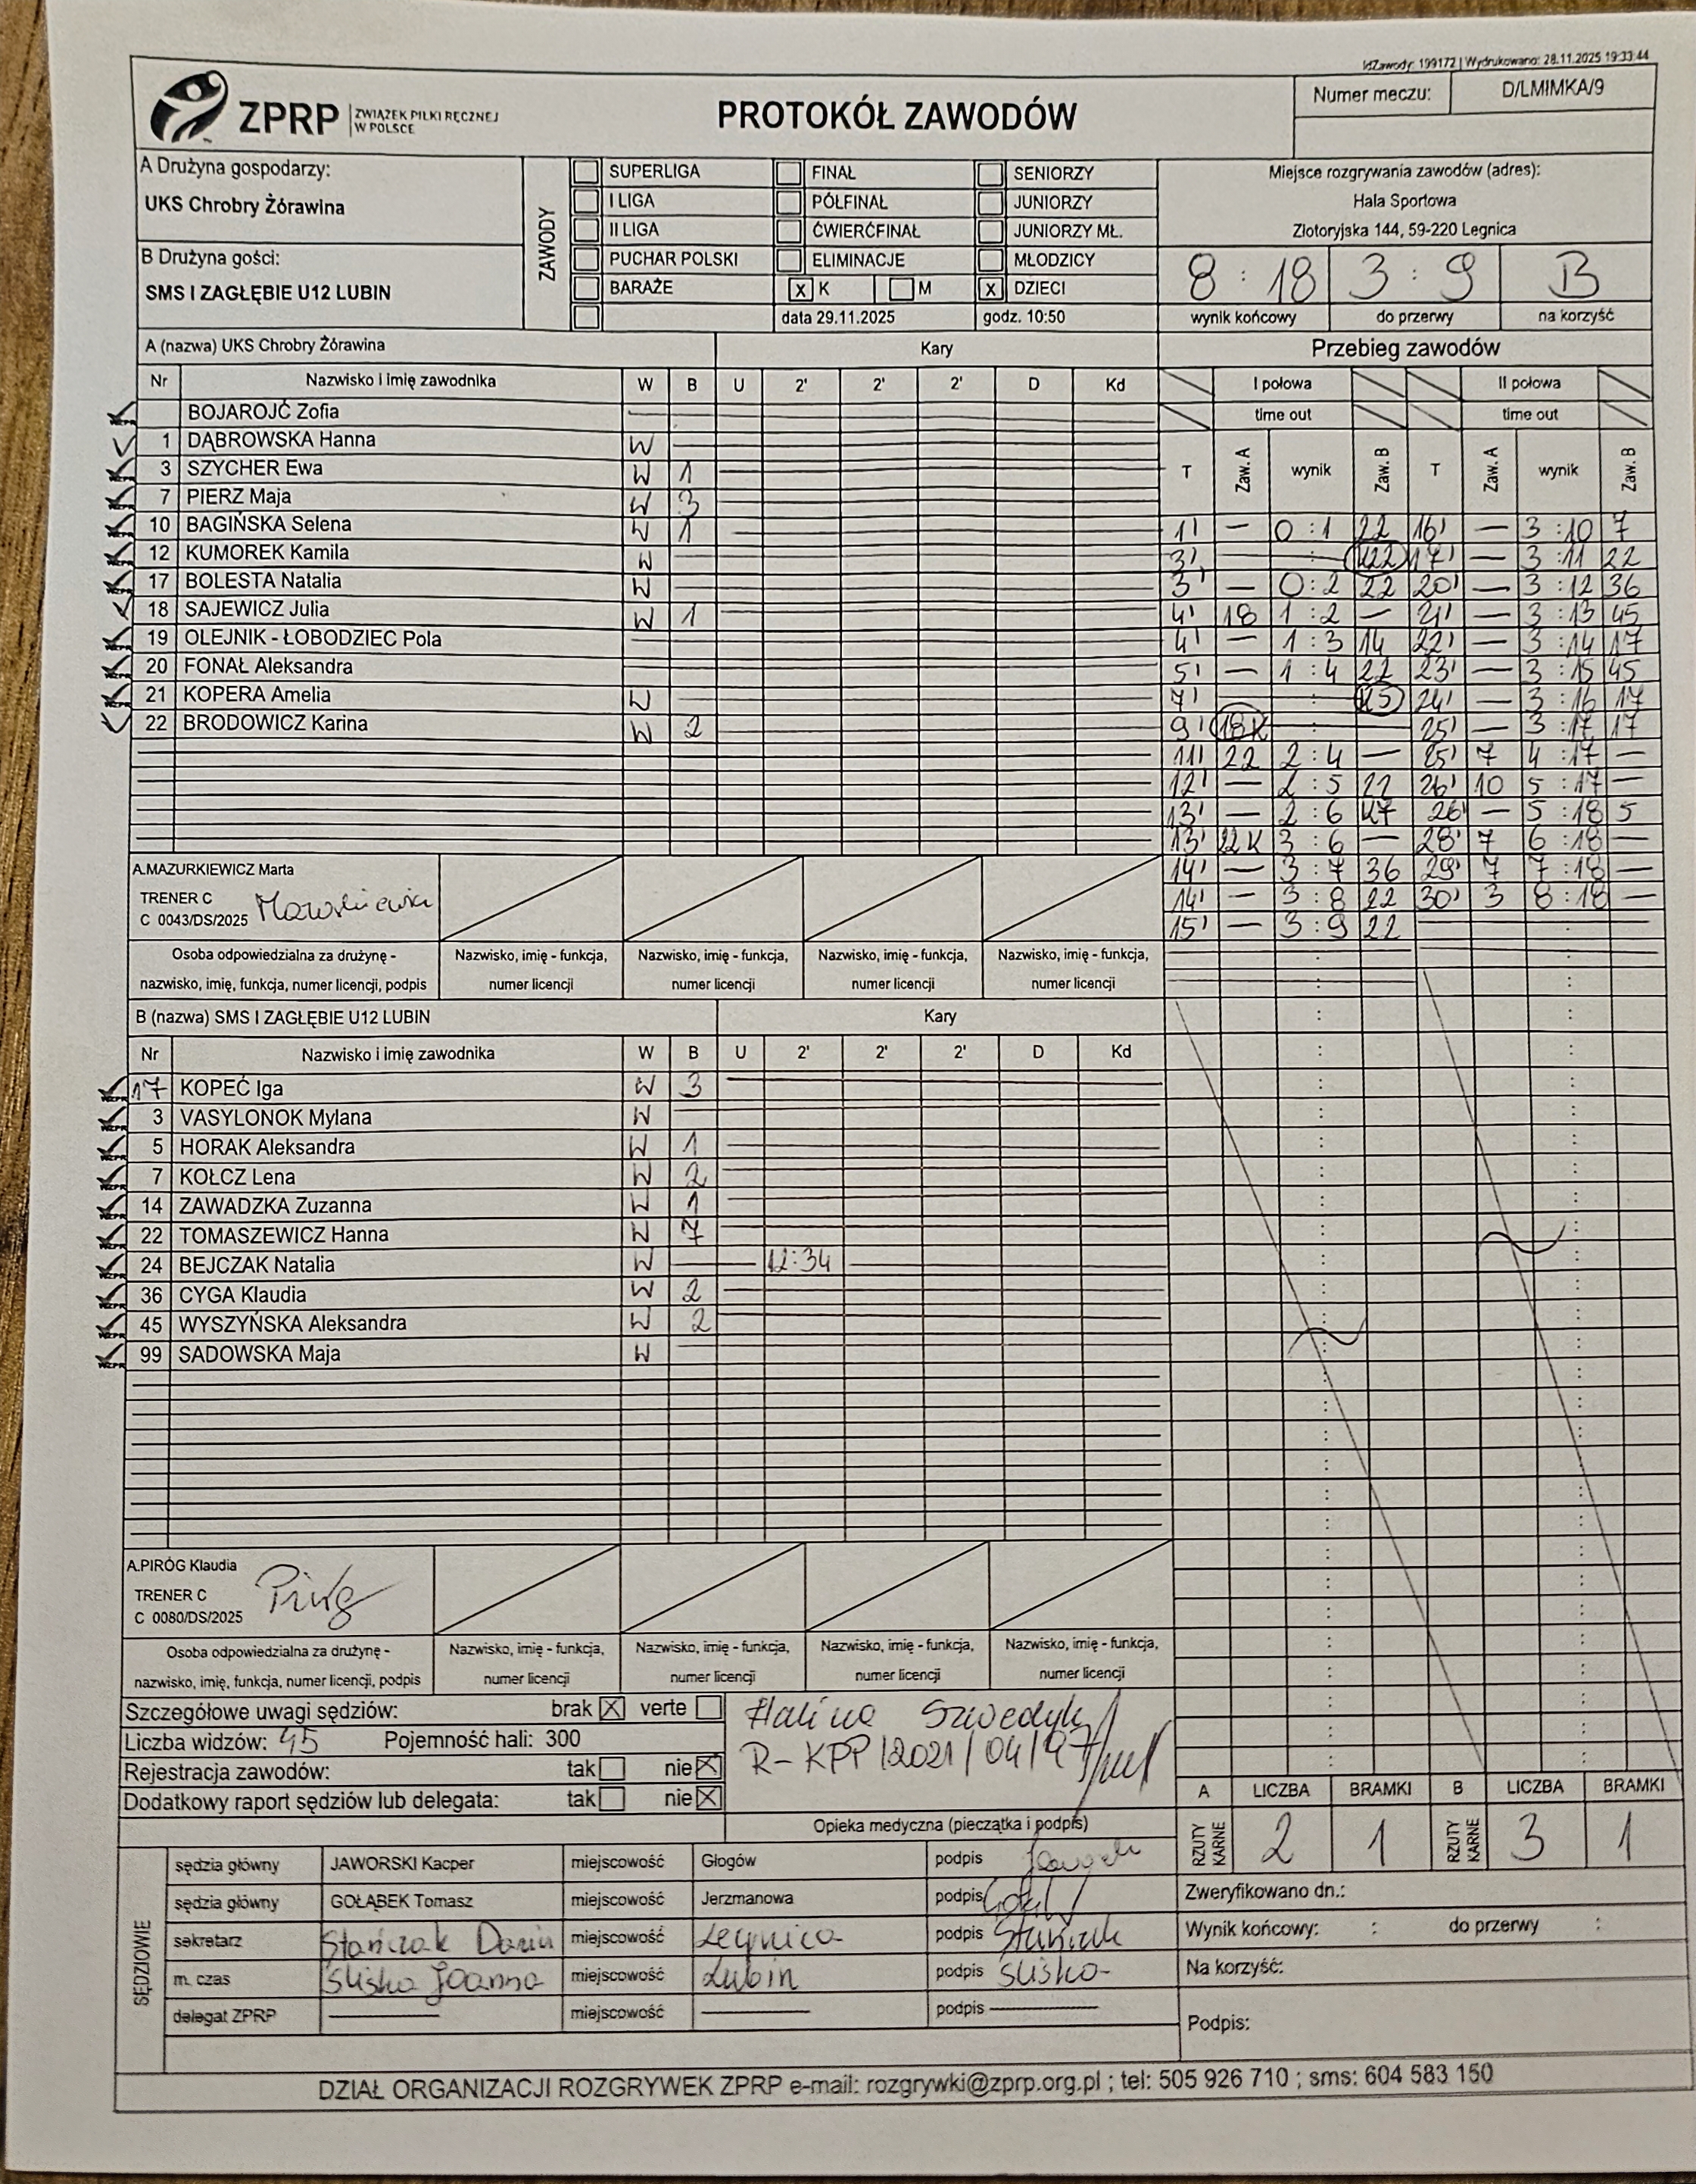 IdZawody: 199172 | Wydrukowano: 28.11.2025 19:33:44
ZPRP ZWIĄZEK PIŁKI RĘCZNEJ W POLSCE
PROTOKÓŁ ZAWODÓW
Numer meczu: D/LMIMKA/9
A Drużyna gospodarzy:
UKS Chrobry Żórawina
B Drużyna gości:
SMS I ZAGŁĘBIE U12 LUBIN
ZAWODY
SUPERLIGA FINAŁ SENIORZY
I LIGA PÓŁFINAŁ JUNIORZY
II LIGA ĆWIERĆFINAŁ JUNIORZY MŁ.
PUCHAR POLSKI ELIMINACJE MŁODZICY
BARAŻE X K M X DZIECI
data 29.11.2025 godz. 10:50
Miejsce rozgrywania zawodów (adres):
Hala Sportowa
Złotoryjska 144, 59-220 Legnica
8 : 18 3 : 9 B
wynik końcowy do przerwy na korzyść
A (nazwa) UKS Chrobry Żórawina Kary
Nr Nazwisko i imię zawodnika W B U 2' 2' 2' D Kd
BOJAROJĆ Zofia
1 DĄBROWSKA Hanna W
3 SZYCHER Ewa W 1
7 PIERZ Maja W 3
10 BAGIŃSKA Selena W 1
12 KUMOREK Kamila W
17 BOLESTA Natalia W
18 SAJEWICZ Julia W 1
19 OLEJNIK - ŁOBODZIEC Pola
20 FONAŁ Aleksandra
21 KOPERA Amelia W
22 BRODOWICZ Karina W 2
A.MAZURKIEWICZ Marta
TRENER C
C 0043/DS/2025
Osoba odpowiedzialna za drużynę - Nazwisko, imię - funkcja, Nazwisko, imię - funkcja, Nazwisko, imię - funkcja, Nazwisko, imię - funkcja,
nazwisko, imię, funkcja, numer licencji, podpis numer licencji numer licencji numer licencji numer licencji
Przebieg zawodów
I połowa II połowa
time out time out
T Zaw. A wynik Zaw. B T Zaw. A wynik Zaw. B
1' — 0 : 1 22 16' — 3 : 10 7
3' : K22 17' — 3 : 11 22
3' — 0 : 2 22 20' — 3 : 12 36
4' 18 1 : 2 — 21' — 3 : 13 45
4' — 1 : 3 14 22' — 3 : 14 17
5' — 1 : 4 22 23' — 3 : 15 45
7' : K5 24' — 3 : 16 17
9' 18K : 25' — 3 : 17 17
11' 22 2 : 4 — 25' 7 4 : 17 —
12' — 2 : 5 22 26' 10 5 : 17 —
13' — 2 : 6 K7 26' — 5 : 18 5
13' 22K 3 : 6 — 28' 7 6 : 18 —
14' — 3 : 7 36 29' 7 7 : 18 —
14' — 3 : 8 22 30' 3 8 : 18 —
15' — 3 : 9 22
B (nazwa) SMS I ZAGŁĘBIE U12 LUBIN Kary
Nr Nazwisko i imię zawodnika W B U 2' 2' 2' D Kd
17 KOPEĆ Iga W 3
3 VASYLONOK Mylana W
5 HORAK Aleksandra W 1
7 KOŁCZ Lena W 2
14 ZAWADZKA Zuzanna W 1
22 TOMASZEWICZ Hanna W 7
24 BEJCZAK Natalia W 12:34
36 CYGA Klaudia W 2
45 WYSZYŃSKA Aleksandra W 2
99 SADOWSKA Maja W
A.PIRÓG Klaudia
TRENER C Piróg
C 0080/DS/2025
Osoba odpowiedzialna za drużynę - Nazwisko, imię - funkcja, Nazwisko, imię - funkcja, Nazwisko, imię - funkcja, Nazwisko, imię - funkcja,
nazwisko, imię, funkcja, numer licencji, podpis numer licencji numer licencji numer licencji numer licencji
Szczegółowe uwagi sędziów: brak X verte
Liczba widzów: 45 Pojemność hali: 300
Rejestracja zawodów: tak nie X
Dodatkowy raport sędziów lub delegata: tak nie X
Halina Szwedyk
R-KPP/2021/04/97
Opieka medyczna (pieczątka i podpis)
A LICZBA BRAMKI B LICZBA BRAMKI
RZUTY KARNE 2 1 RZUTY KARNE 3 1
SĘDZIOWIE
sędzia główny JAWORSKI Kacper miejscowość Głogów podpis
sędzia główny GOŁĄBEK Tomasz miejscowość Jerzmanowa podpis
sekretarz Stańczak Daria miejscowość Legnica podpis Stańczak
m. czas Slisko Joanna miejscowość Lubin podpis Slisko
delegat ZPRP — miejscowość — podpis —
Zweryfikowano dn.:
Wynik końcowy: : do przerwy :
Na korzyść:
Podpis:
DZIAŁ ORGANIZACJI ROZGRYWEK ZPRP e-mail: rozgrywki@zprp.org.pl ; tel: 505 926 710 ; sms: 604 583 150